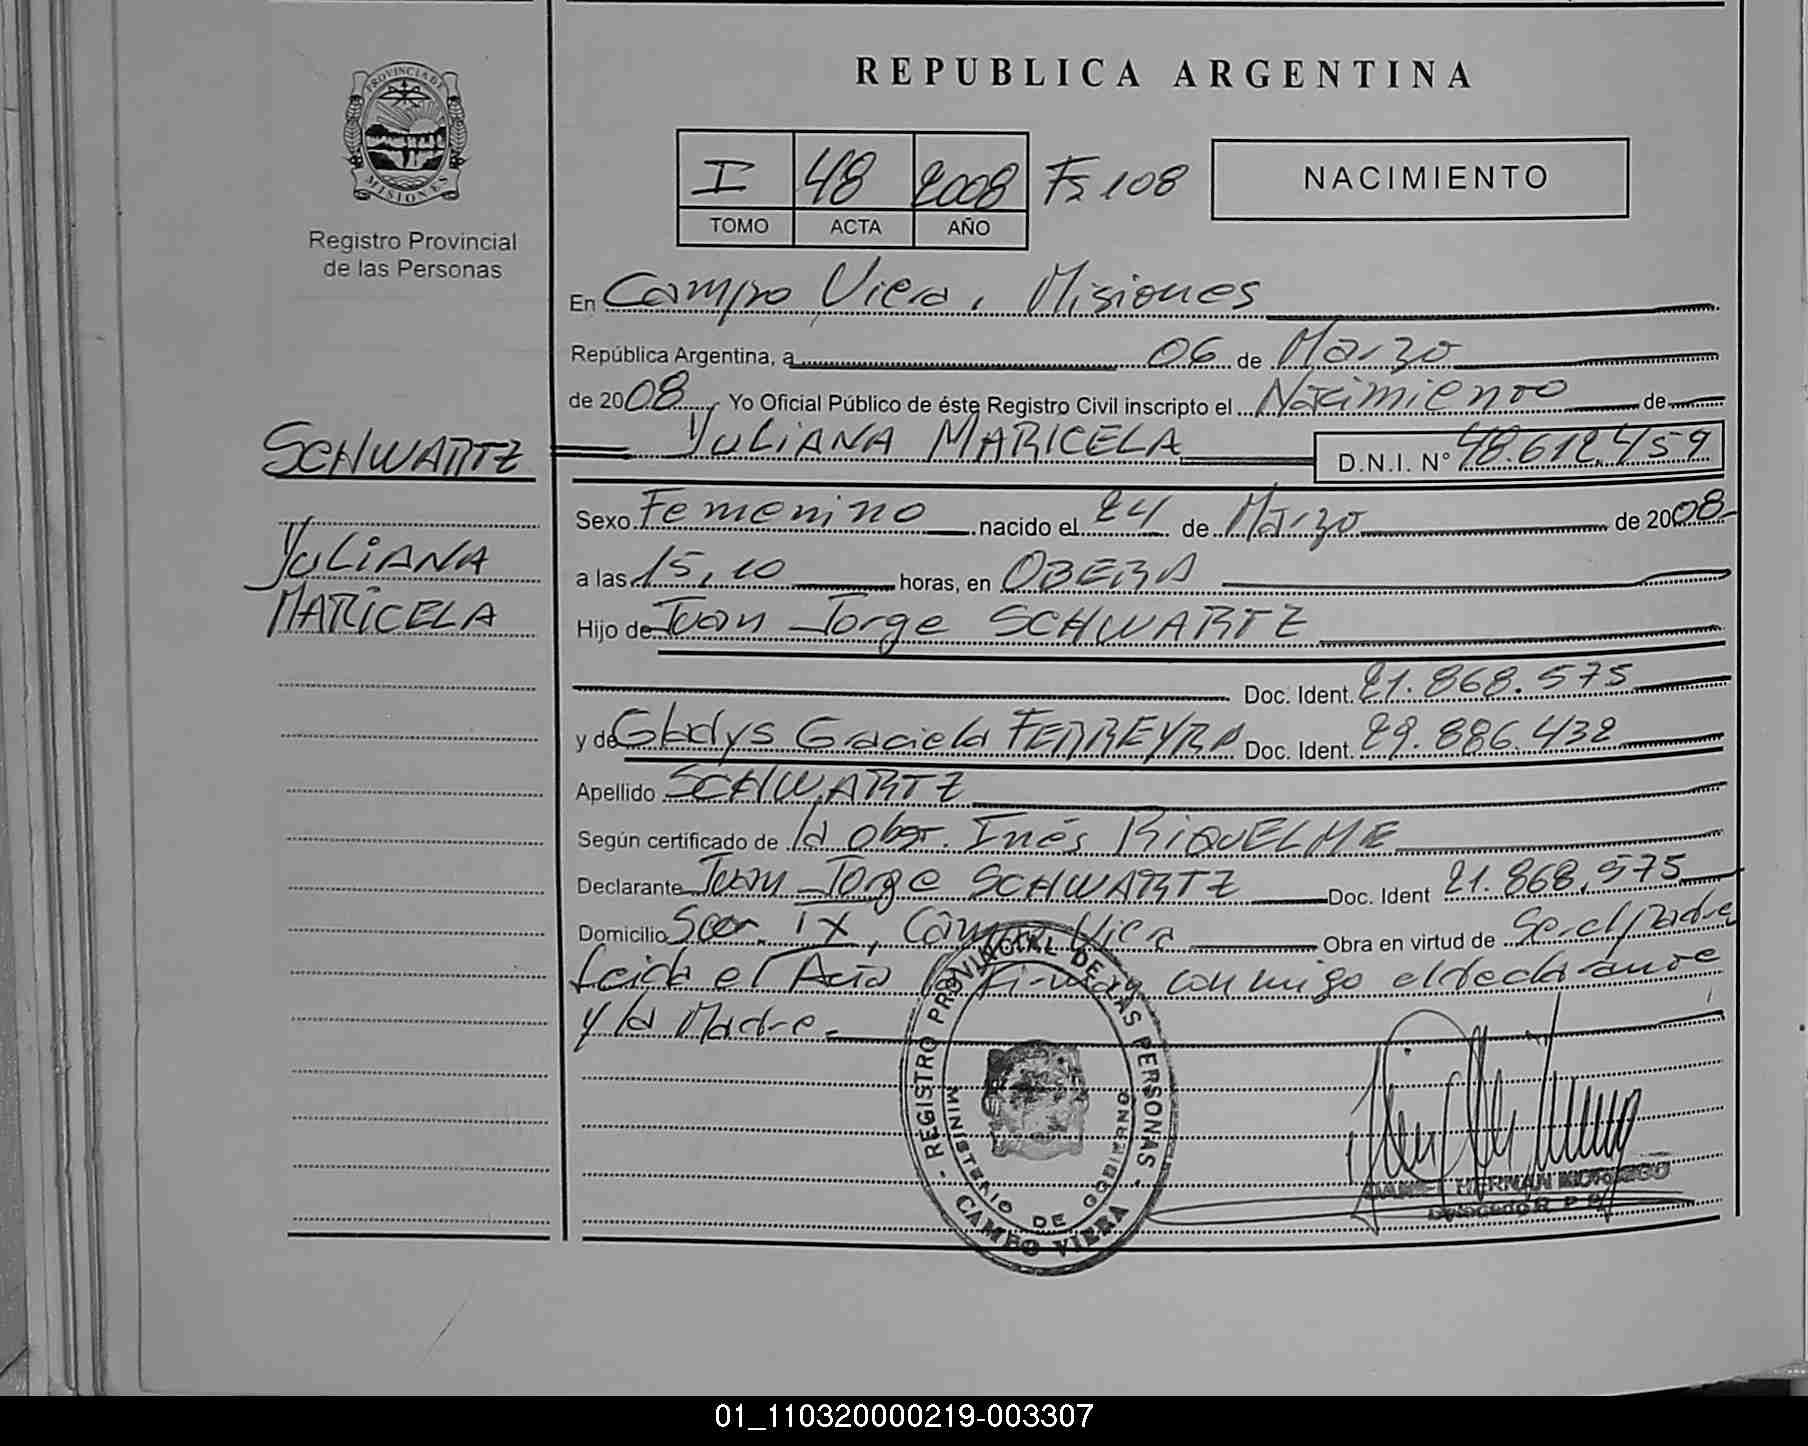 REPUBLICA ARGENTINA
PROVINCIA DE
MISIONES
Registro Provincial
de las Personas
I 48 2008 Fs 108
TOMO ACTA AÑO
NACIMIENTO
En Campo Viera, Misiones
República Argentina, a 06 de Marzo
de 2008 Yo Oficial Público de éste Registro Civil inscripto el Nacimiento de
SCHWARTZ
YULIANA MARICELA D.N.I. N° 48.612.459
Sexo Femenino nacido el 24 de Marzo de 2008
YULIANA
MARICELA
a las 15,10 horas, en OBERA
Hijo de Juan Jorge SCHWARTZ
Doc. Ident. 21.868.575
y de Gladys Graciela FERREYRA Doc. Ident. 29.886.432
Apellido SCHWARTZ
Según certificado de la Obst. Inés RIQUELME
Declarante Juan Jorge SCHWARTZ Doc. Ident 21.868.575
Domicilio IX, Campo Viera Obra en virtud de Ser el padre
Leida el Acta la firman conmigo el declarante
y la Madre.-
REGISTRO PROVINCIAL DE LAS PERSONAS
MINISTERIO DE GOBIERNO
CAMPO VIERA
HERNAN
01_110320000219-003307